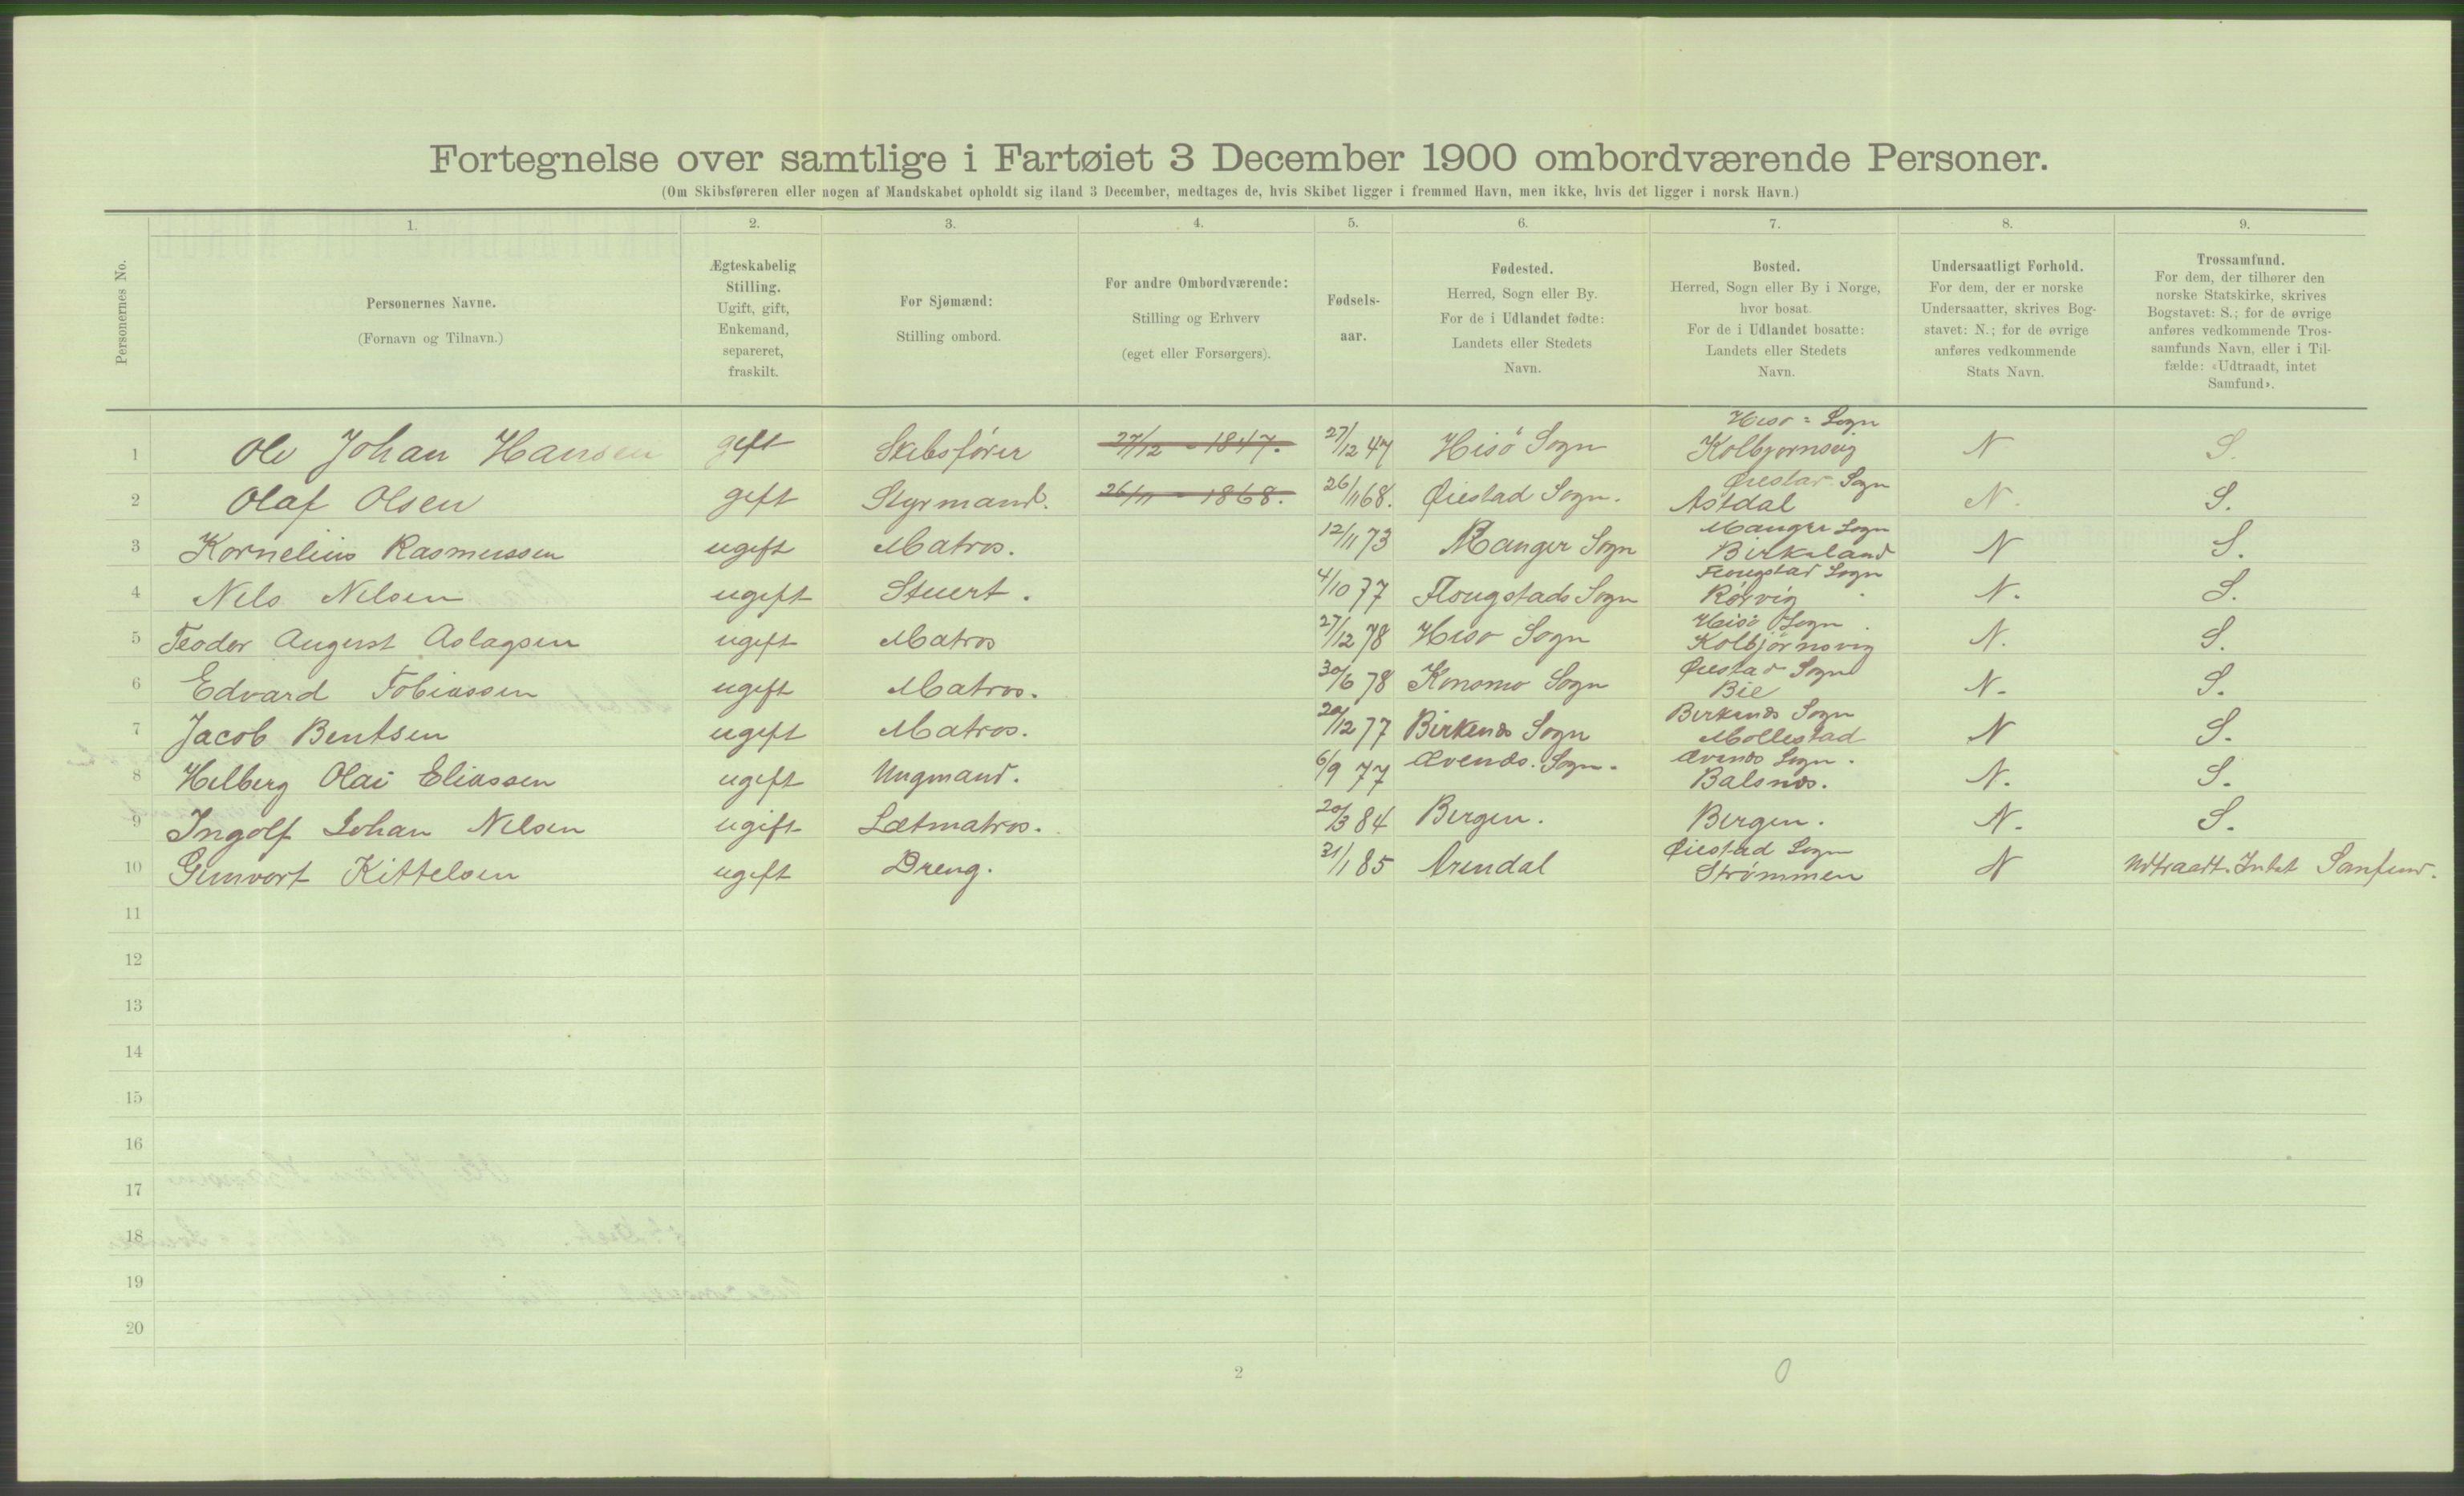 Fortegnelse over samtlige i Fartøiet 3 December 1900 ombordværende Personer.
(Om Skibsføreren eller nogen af Mandskabet opholdt sig iland 3 December, medtages de, hvis Skibet ligger i fremmed Havn, men ikke, hvis det ligger i norsk Havn.)
Personernes No.
1. 2. 3. 4. 5. 6. 7. 8. 9.
Personernes Navne.
(Fornavn og Tilnavn.)
Ægteskabelig
Stilling.
Ugift, gift,
Enkemand,
separeret,
fraskilt.
For Sjømænd:
Stilling ombord.
For andre Ombordværende:
Stilling og Erhverv
(eget eller Forsørgers).
Fødsels-
aar.
Fødested.
Herred, Sogn eller By.
For de i Udlandet fødte:
Landets eller Stedets
Navn.
Bosted.
Herred, Sogn eller By i Norge,
hvor bosat.
For de i Udlandet bosatte:
Landets eller Stedets
Navn.
Undersaatligt Forhold.
For dem, der er norske
Undersaatter, skrives Bog-
stavet: N.; for de øvrige
anføres vedkommende
Stats Navn.
Trossamfund.
For dem, der tilhører den
norske Statskirke, skrives
Bogstavet: S.; for de øvrige
anføres vedkommende Tros-
samfunds Navn, eller i Til-
fælde: «Udtraadt, intet
Samfund».
Hisö = Sogn
1 Ole Johan Hansen gift Skibsfører 27/12 - 1847. 27/12 47 Hisö Sogn Kolbjørnsvig N S.
Øiestad Sogn
2 Olaf Olsen gift Styrmand. 26/11 - 1868. 26/11 68. Øiestad Sogn. Asdal N. S.
Manger Sogn
3 Kornelius Rasmussen ugift Matros. 12/11 73 Manger Sogn Birkeland N S.
Sogn
4 Nels Nelsen ugift Stuert. 4/10 77 Sogn Rørvig N. S.
Hisö Sogn
5 Teodor August Aslagsen ugift Matros 27/12 78 Hisö Sogn Kolbjörnsvig N. S.
Øiestad Sogn
6 Edvard Tobiassen ugift Matros. 30/6 78 Konsmo Sogn Bie N. S.
Birkenæs Sogn
7 Jacob Bentsen ugift Matros. 20/12 77 Birkenæs Sogn Mollestad N S.
Sogn.
8 Helberg Olai Eliassen ugift Ungmand. 6/9 77 Sogn. Balsnæs. N. S.
9 Ingolf Johan Nelsen ugift Lætmatros. 20/3 84 Bergen. Bergen. N. S.
Øiestad Sogn
10 Gunvort Kittelsen ugift Dreng. 31/1 85 Arendal Strømmen N Udtraadt. Intet Samfund.
11
12
13
14
15
16
17
18
19
20
2 0